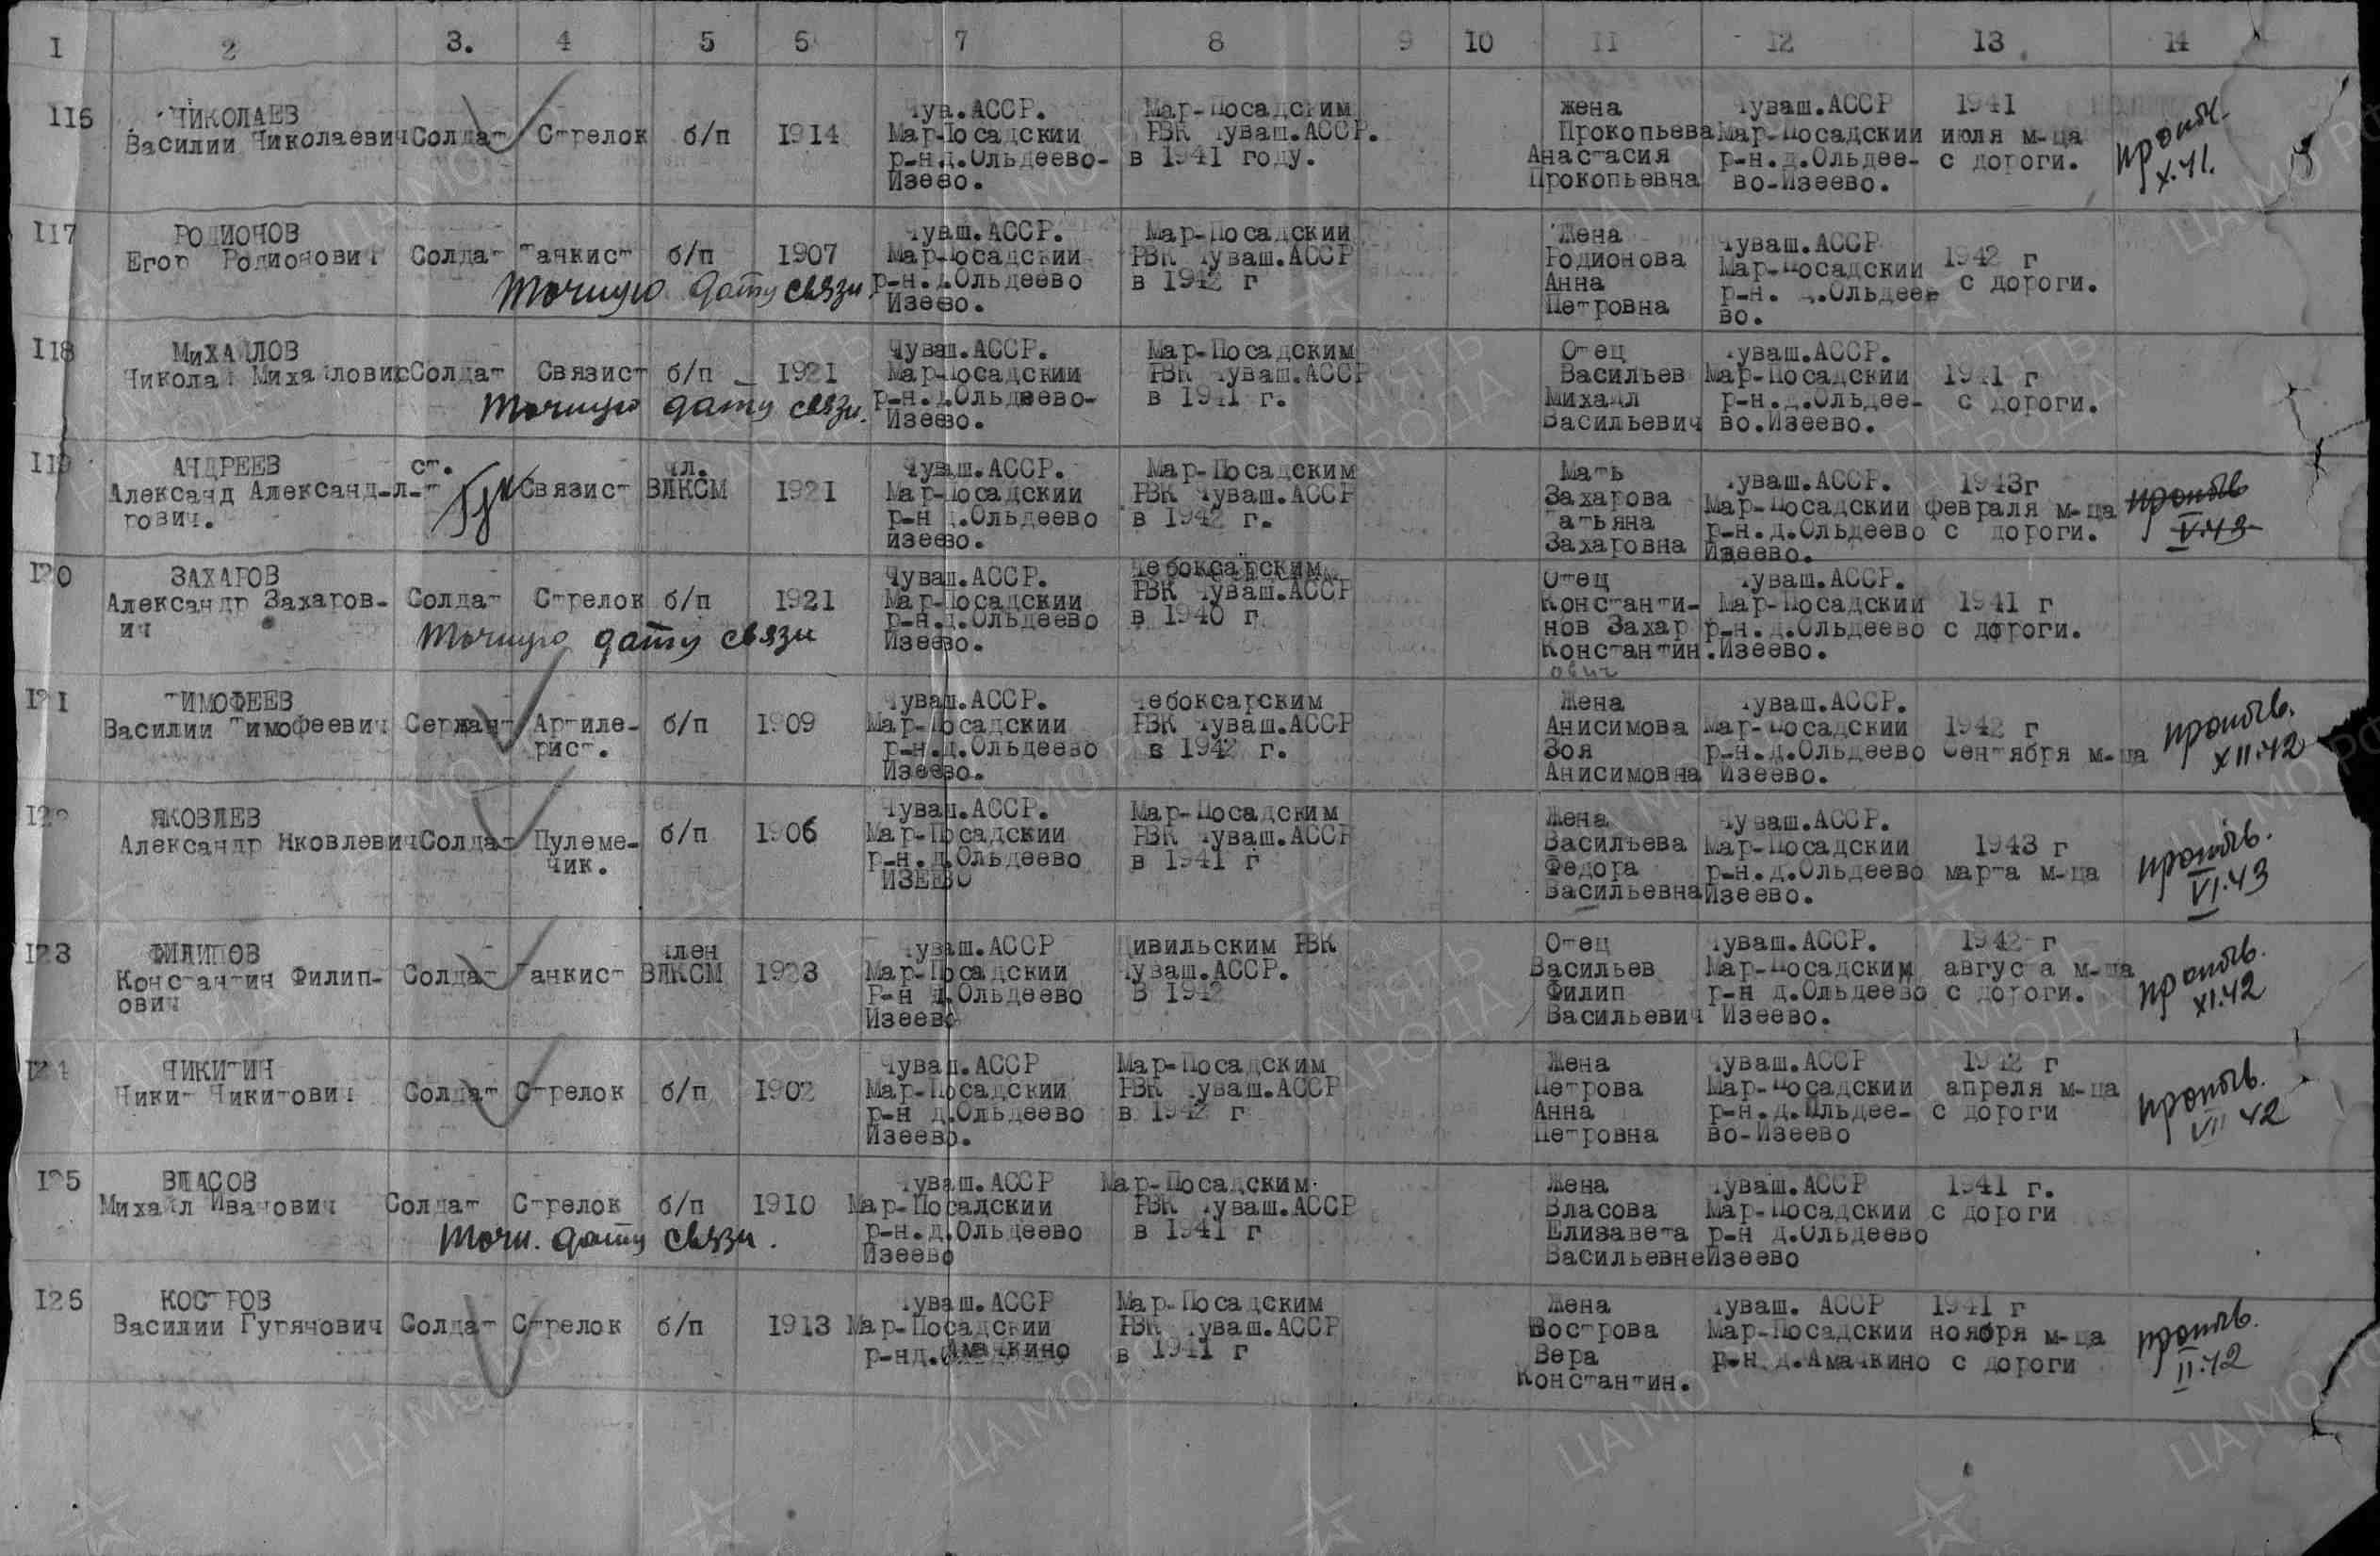 1 2 3. 4 5 6 7 8 9 10 11 12 13 14
116 НИКОЛАЕВ Василии Николаевич Солдат Стрелок б/п 1914
Чув.АССР.
Мар-Посадскии
р-н.д.Ольдеево-
Изеево.
Мар-Посадским
РВК Чуваш.АССР.
в 1941 году.
жена
Прокопьева
Анастасия
Прокопьевна
Чуваш.АССР
Мар-Посадскии
р-н.д.Ольдее-
во-Изеево.
1941
июля м-ца
с дороги.
пропач.
X.41.
117 РОДИОНОВ
Егор Родионович Солдат Танкист б/п 1907
Точную дату связи
Чуваш.АССР.
Мар-Посадскии
р-н.д.Ольдеево
Изеево.
Мар-Посадский
РВК Чуваш.АССР
в 1942 г
Жена
Родионова
Анна
Петровна
Чуваш.АССР
Мар-Посадскии
р-н. д.Ольдее
во.
1942 г
с дороги.
118 МиХАЙЛОВ
Николай Михайлович Солдат Связист б/п 1921
Точную дату связи.
Чуваш.АССР.
Мар-Посадскии
р-н.д.Ольдеево-
Изеево.
Мар-Посадским
РВК Чуваш.АССР
в 1941 г.
Отец
Васильев
Михаил
Васильевич
Чуваш.АССР.
Мар-Посадскии
р-н.д.Ольдее-
во.Изеево.
1941 г
с дороги.
119 АНДРЕЕВ
Александ Александ-
рович.
ст.
л-т Связист
Чл.
ВЛКСМ 1921
Чуваш.АССР.
Мар-Посадскии
р-н д.Ольдеево
изеево.
Мар-Посадским
РВК Чуваш.АССР
в 1942 г.
Мать
Захарова
Татьяна
Захаровна
Чуваш.АССР.
Мар-Посадскии
р-н.д.Ольдеево
Изеево.
1943г
февраля м-ца
с дороги.
пропвб
V.43
120 ЗАХАРОВ
Александр Захаров-
ич
Солдат Стрелок б/п 1921
Точную дату связи
Чуваш.АССР.
Мар-Посадскии
р-н.д.Ольдеево
Изеево.
Чебоксарским
РВК Чуваш.АССР
в 1940 г
Отец
Константи-
нов Захар
Константин.
ович
Чуваш.АССР.
Мар-Посадскии
р-н.д.Ольдеево
Изеево.
1941 г
с дороги.
121 ТИМОФЕЕВ
Василии Тимофеевич Сержант Артиле-
рист.
б/п 1909
Чуваш.АССР.
Мар-Посадскии
р-н.д.Ольдеево
Изеево.
Чебоксарским
РВК Чуваш.АССР
в 1942 г.
Жена
Анисимова
Зоя
Анисимовна
Чуваш.АССР.
Мар-Посадскии
р-н.д.Ольдеево
Изеево.
1942 г
Сентября м-ца
пропвб.
XII.42
122 ЯКОВЛЕВ
Александр Яковлевич Солдат Пулеме-
чик.
б/п 1906
Чуваш.АССР.
Мар-Посадскии
р-н.д.Ольдеево
ИЗЕЕВО
Мар-Посадским
РВК Чуваш.АССР
в 1941 г
Жена
Васильева
Федора
Васильевна
Чуваш.АССР.
Мар-Посадскии
р-н.д.Ольдеево
Изеево.
1943 г
марта м-ца
пропвб.
VI.43
123 ФИЛИПОВ
Константин Филип-
ович
Солдат Танкист
Член
ВЛКСМ 1923
Чуваш.АССР
Мар-Посадскии
Р-н д.Ольдеево
Изеево
Цивильским РВК
Чуваш.АССР.
В 1942
Отец
Васильев
Филип
Васильевич
Чуваш.АССР.
Мар-Посадским
р-н д.Ольдеево
Изеево.
1942 г
августа м-ца
с дороги.
пропвб.
XI.42
124 НИКИТИН
Никит Никитович Солдат Стрелок б/п 1902
Чуваш.АССР
Мар-Посадскии
р-н д.Ольдеево
Изеево.
Мар-Посадским
РВК Чуваш.АССР
в 1942 г
Жена
Петрова
Анна
Петровна
Чуваш.АССР
Мар-Посадскии
р-н.д.Ольдее-
во-Изеево
1942 г
апреля м-ца
с дороги
пропвб.
VII 42
125 ВЛАСОВ
Михайл Иванович Солдат Стрелок б/п 1910
Точн. дату связи.
Чуваш.АССР
Мар-Посадскии
р-н.д.Ольдеево
Изеево
Мар-Посадским
РВК Чуваш.АССР
в 1941 г
Жена
Власова
Елизавета
Васильевне
Чуваш.АССР
Мар-Посадскии
р-н д.Ольдеево
Изеево
1941 г.
с дороги
126 КОСТРОВ
Василии Гурянович Солдат Стрелок б/п 1913
Чуваш.АССР
Мар-Посадскии
р-нд.Амачкино
Мар-Посадским
РВК Чуваш.АССР
в 1941 г
Жена
Вострова
Вера
Константин.
Чуваш. АССР
Мар-Посадскии
р-н.д.Амачкино
1941 г
ноября м-ца
с дороги
пропвб.
II.42